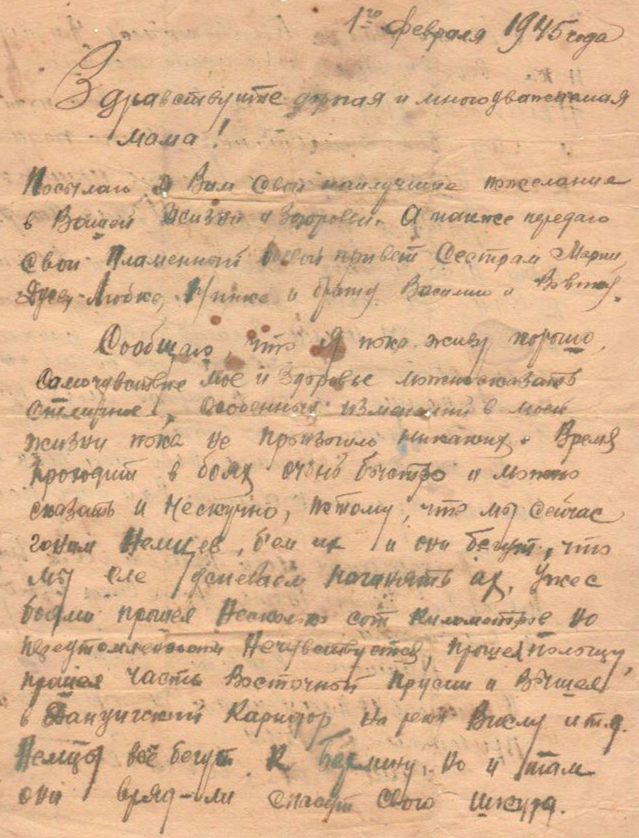 1го Февраля 1945 года
Здравствуйте дорогая и многоуважаемая
мама!
Посылаю я Вам свои наилучшие пожелание
в Вашей жизни и здоровьи. А также передаю
свой пламенный боевой привет Сестрам Марии,
Дусе, Любке, Нинке и брату Василию и
Сообщаю, что я пока живу хорошо,
самочувствие мое и здоровье можно сказать
отличное!, особенных изменений в моей
жизни пока не произошло никаких. Время
проходит в боях очень быстро и можно
сказать и нескучно, потому, что мы сейчас
гоним Немцев, бьем их и они бегут, что
мы еле успеваем их, уже с
боями прошел несколько сот километров но
нечувствуется, прошел польшу,
прошел часть Восточной Прусии и вышел
в Данцигский Каридор на реку Вислу и т.д.
Немцы всё бегут к Берлину, но и там
они вряд-ли спасут свою шкуру.